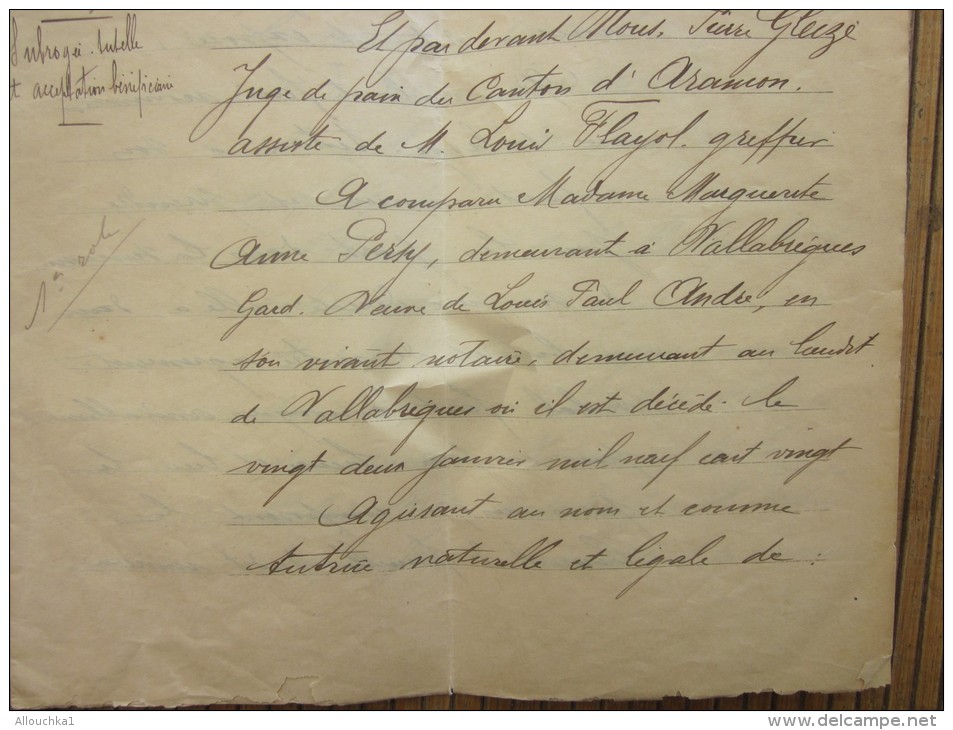 Subrogée-tutelle
et acceptation bénéficiaire
Et par devant Nous, Pierre Gleize
Juge de paix du Canton d'Aramon,
assisté de M. Louis Flayol, greffier
A comparu Madame Marguerite
Anne , demeurant à Vallabrègues
Gard. Veuve de Louis Paul André, en
1er role
son vivant notaire, demeurant au
de Vallabrègues où il est décédé le
vingt deux Janvier mil neuf cent vingt
Agissant au nom et comme
tutrice naturelle et légale de :
Allouchka1
www.delcampe.net